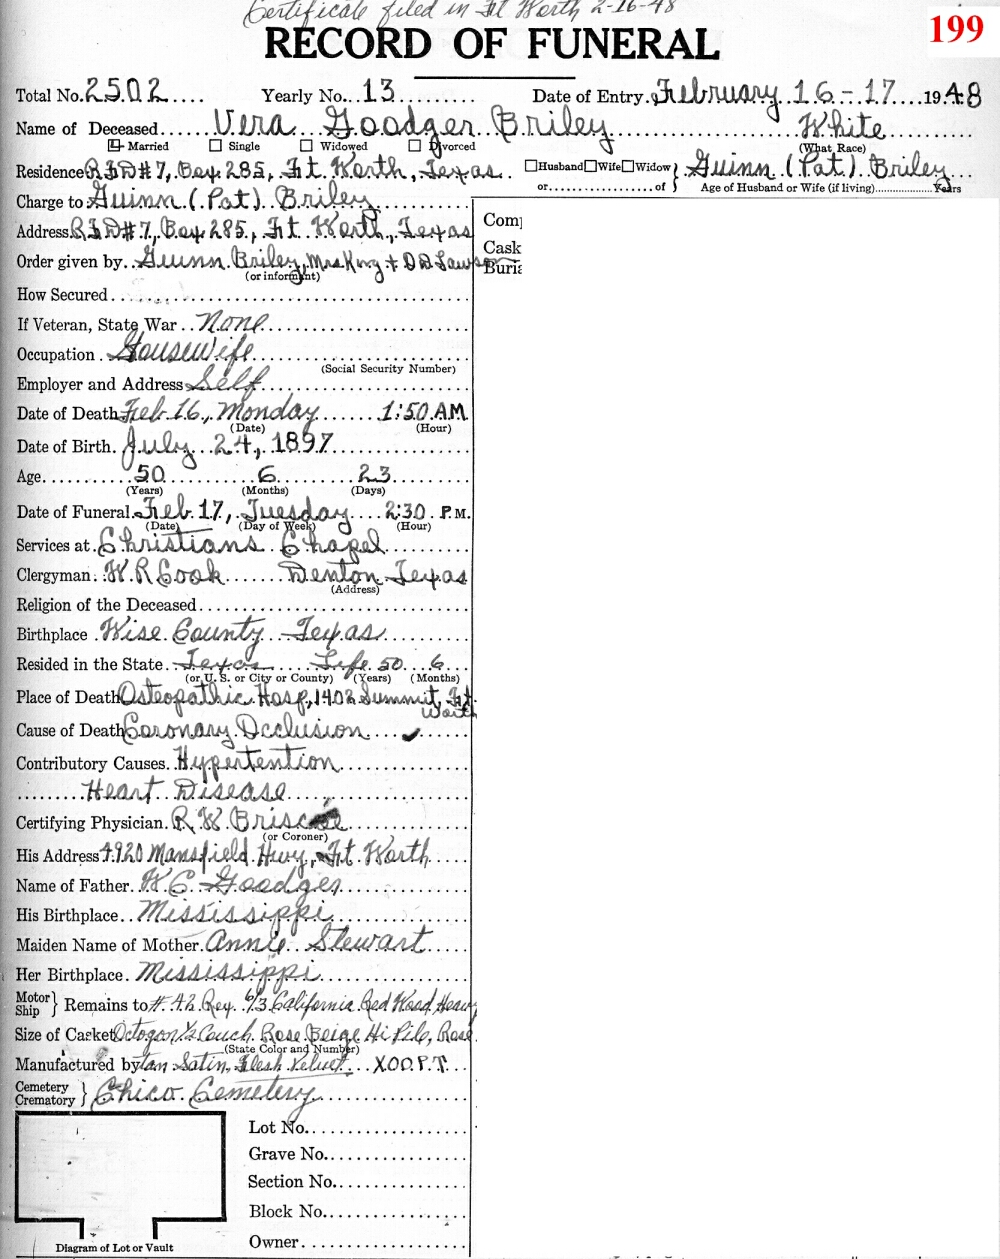 Certificate filed in Ft Worth 2-16-48
199
RECORD OF FUNERAL
Total No. 2502 Yearly No. 13 Date of Entry. February 16-17 1948
Name of Deceased Vera Goodger Briley White
Married Single Widowed Divorced (What Race)
Residence RFD#7, Box 285, Ft. Worth, Texas. Husband Wife Widow } Guinn (Pat) Briley
or of } Age of Husband or Wife (if living) Years
Charge to Guinn (Pat) Briley
Address RFD#7, Box 285, Ft Worth, Texas
Order given by Guinn Briley, Mrs King + D D Lawson
(or informant)
How Secured
If Veteran, State War None
Occupation Housewife
(Social Security Number)
Employer and Address Self
Date of Death Feb 16, Monday 1:50 AM
(Date) (Hour)
Date of Birth July 24, 1897
Age 50 6 23
(Years) (Months) (Days)
Date of Funeral Feb 17, Tuesday 2:30 P.M.
(Date) (Day of Week) (Hour)
Services at Christians Chapel
Clergyman W R Cook Denton Texas
(Address)
Religion of the Deceased
Birthplace Wise County Texas
Resided in the State Texas Life 50 6
(or U. S. or City or County) (Years) (Months)
Place of Death Osteopathic Hosp, 1402 Summit, Ft
Worth
Cause of Death Coronary Occlusion
Contributory Causes Hypertention
Heart Disease
Certifying Physician R W Briscoe
(or Coroner)
His Address 4920 Mansfield Hwy, Ft Worth
Name of Father W C Goodger
His Birthplace Mississippi
Maiden Name of Mother Annie Stewart
Her Birthplace Mississippi
Motor Ship } Remains to #42 Rex 6/3 California Red Wood Heavy
Size of Casket Octogon 1/2 Couch Rose Beige Hi Pile, Rose
(State Color and Number)
Manufactured by tan Satin, Flesh Velvet XOOPT
Cemetery Crematory } Chico Cemetery
Lot No.
Grave No.
Section No.
Block No.
Owner
Diagram of Lot or Vault
Com
Cask
Buria